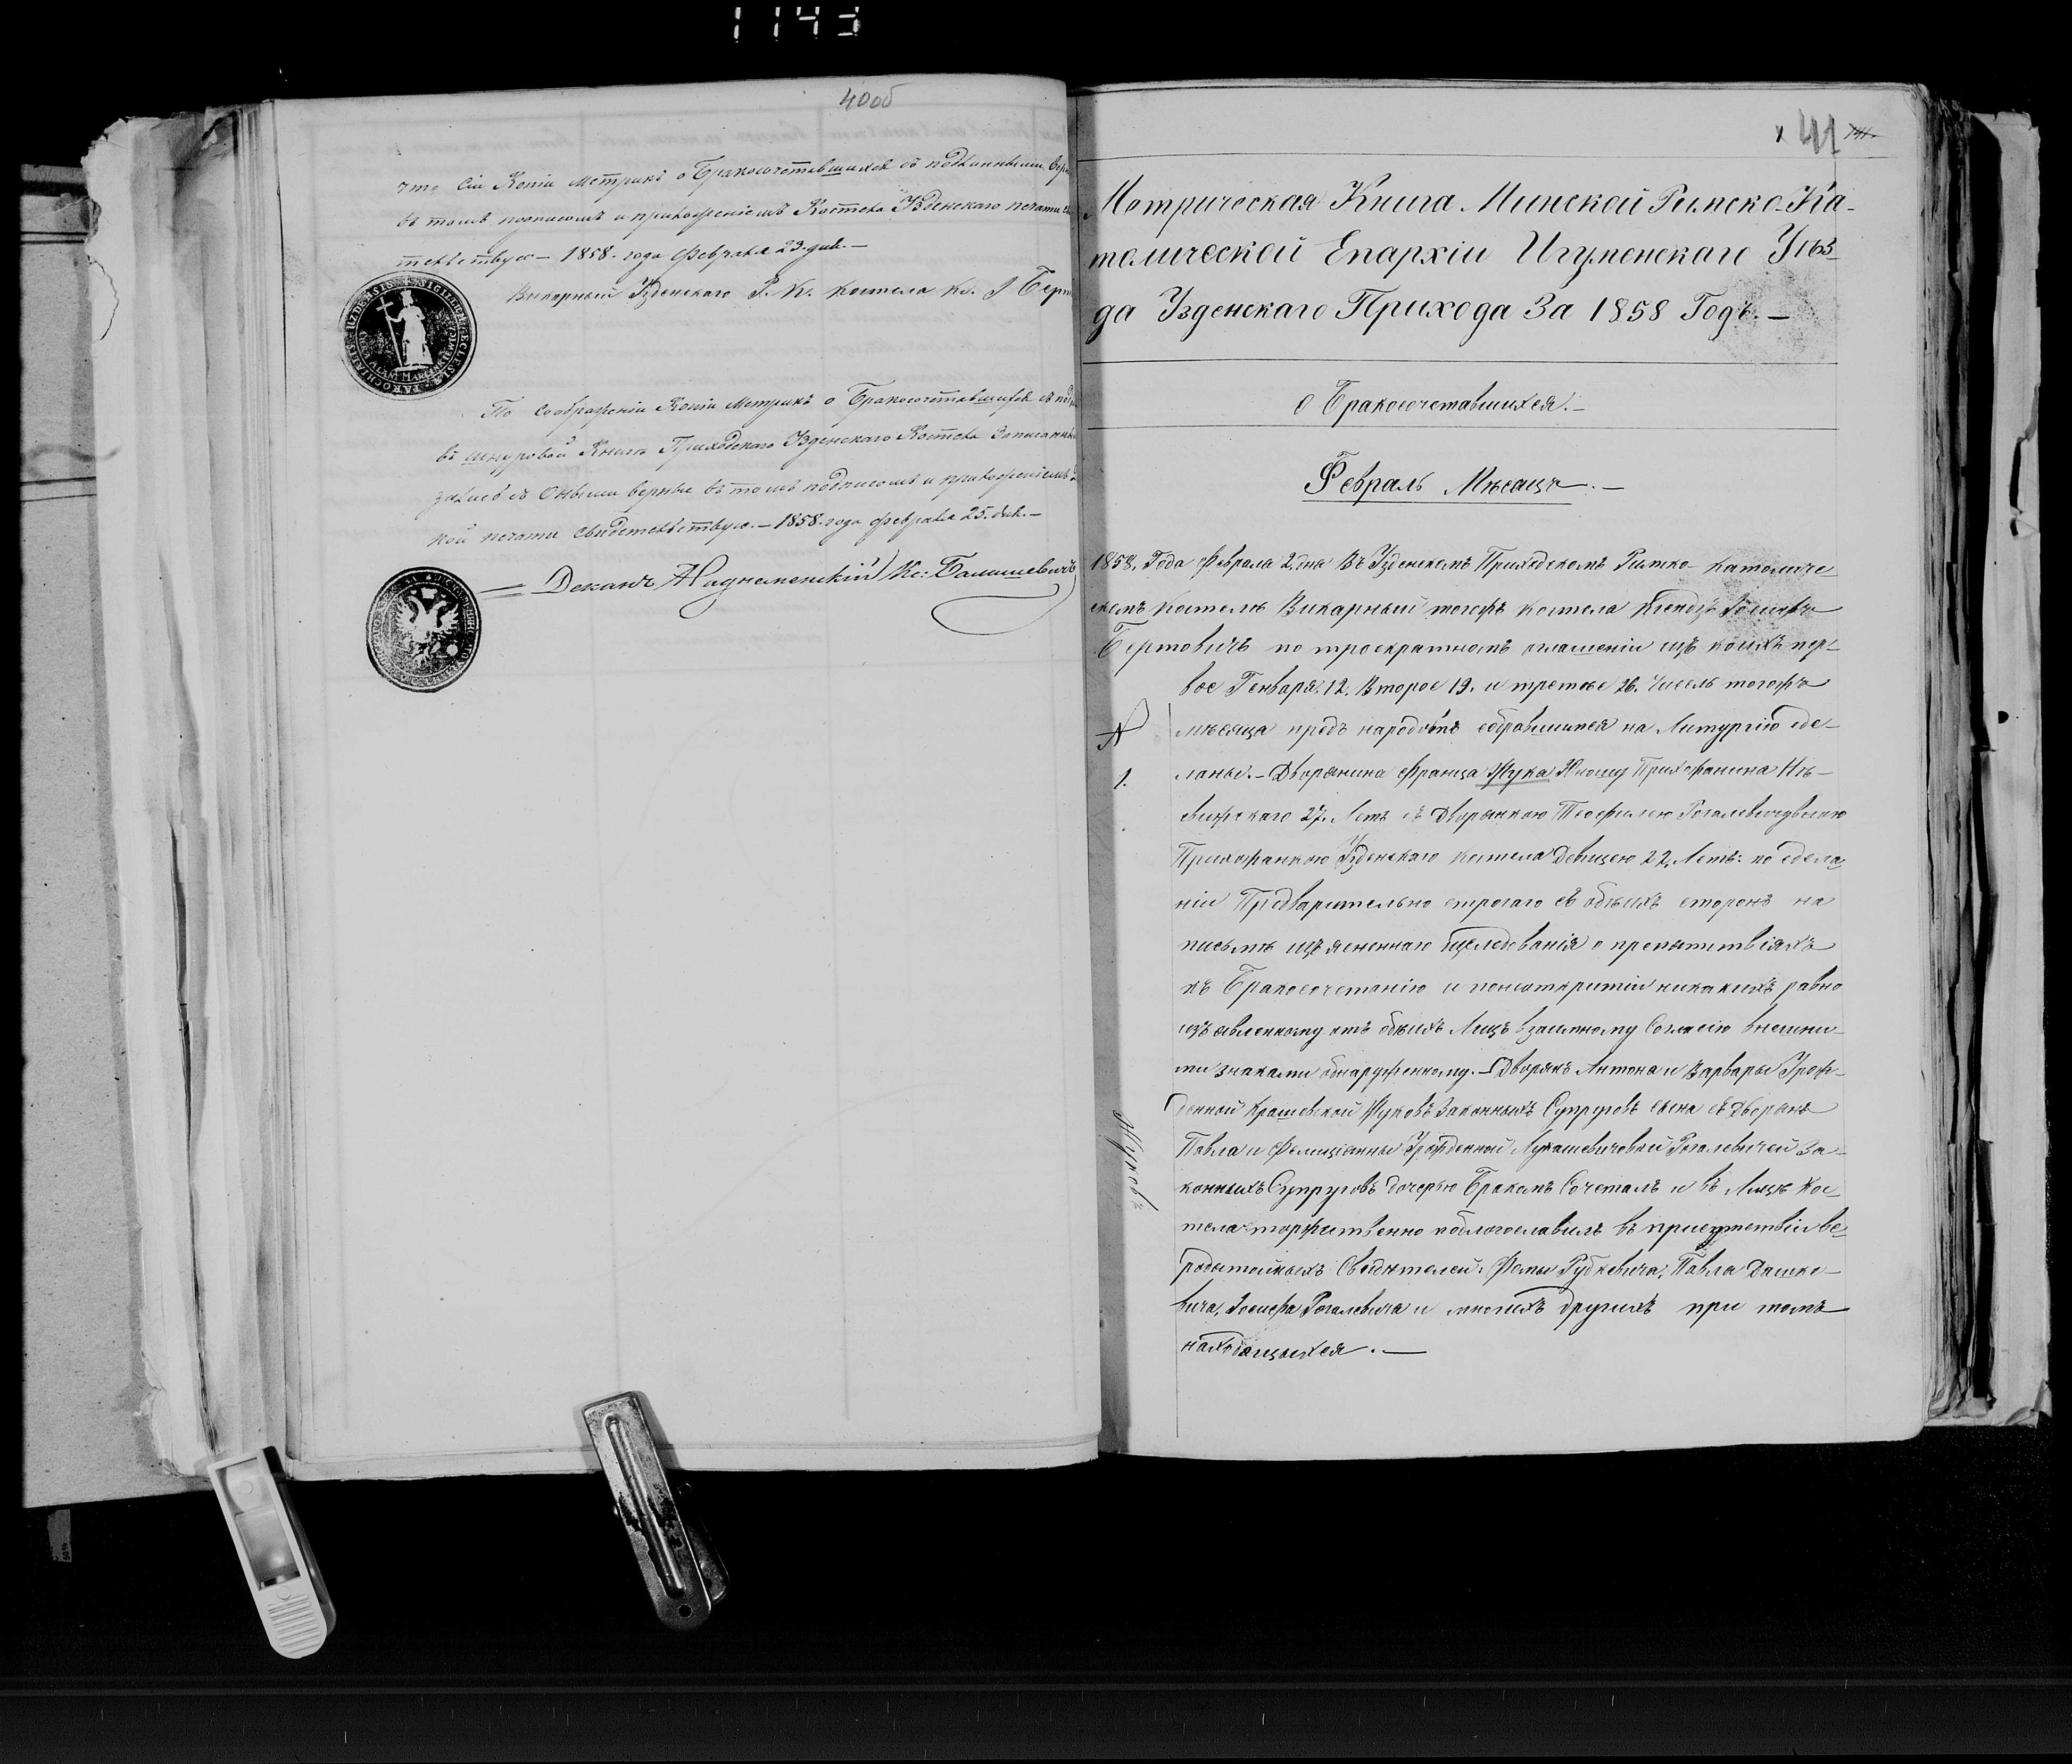 1143
40об
что сіи Копіи метрикъ о Бракосочетавшихся съ подлинными вер
въ томъ подписомъ и приложеніемъ Костела Узденскаго печати
тельствую — 1858. года Февраля 23. дня. —
Викарный Узденскаго Р. К. костела Кс. І Берт
SIGILLUM ECLESIÆ PAROCHIALIS UZDENSIS
По соображеніи Копіи Метрикъ о Бракосочетавшихся съ под
въ шнуровой Книгѣ Приходскаго Узденскаго Костела Записанны
съ оными верны въ томъ подписомъ и приложеніемъ
кой печати свидетельствую. — 1858. года февраля 25. дня. —
Деканъ Наднеменскій Кс: Балишевичъ
41
Метрическая Книга Минской Римско-Ка-
толической Епархіи Игуменскаго Уѣз-
да Узденскаго Прихода За 1858 Годъ. —
о Бракосочетавшихся. —
Февраль Мѣсяцъ. —
1858. Года Февраля 2. дня Въ Узденскомъ Приходскомъ Римско-Католиче
скомъ костелѣ Викарный тогожъ костела Ксендзъ Іосифъ
Бертовичъ по троекратномъ оглашеніи изъ коихъ пер-
вое Генваря 12. Второе 19. и третье 26. Числъ тогожъ
мѣсяца предъ народомъ собравшимся на Литургію сде-
ланы. — Дворянина Франца Жука Юношу Прихожанина Нѣ-
свижскаго 27. Летъ съ Дворянкою Теофилею Рогалевичувною
Прихожанкою Узденскаго костела Девицею 22. Летъ: по сдела-
ніи Предварительно строгаго съ обѣихъ сторонъ на
письмѣ изъясненнаго изследованія о препятствіяхъ
къ Бракосочетанію и понеоткритіи никакихъ равно
изъявленному отъ обѣихъ Лицъ взаимному Согласію внешни-
ми знаками обнаруженному. — Дворянъ Антона и Варвары Урож-
денной Крашевской Жуковъ Законныхъ Супруговъ сына съ Дворянъ
Павла и Фелиціянны Урожденной Лукашевичовой Рогалевичей За-
конныхъ Супруговъ дочерью Бракомъ Сочеталъ и въ Лицѣ Кос-
тела торжественно поблогославилъ въ присутствіи ве-
родостойныхъ Свидѣтелей: Фомы Рудкевича, Павла Дашке-
вича, Іосифа Рогалевича и многихъ другихъ при томъ
находящихся. —
№
1.
Жуковъ